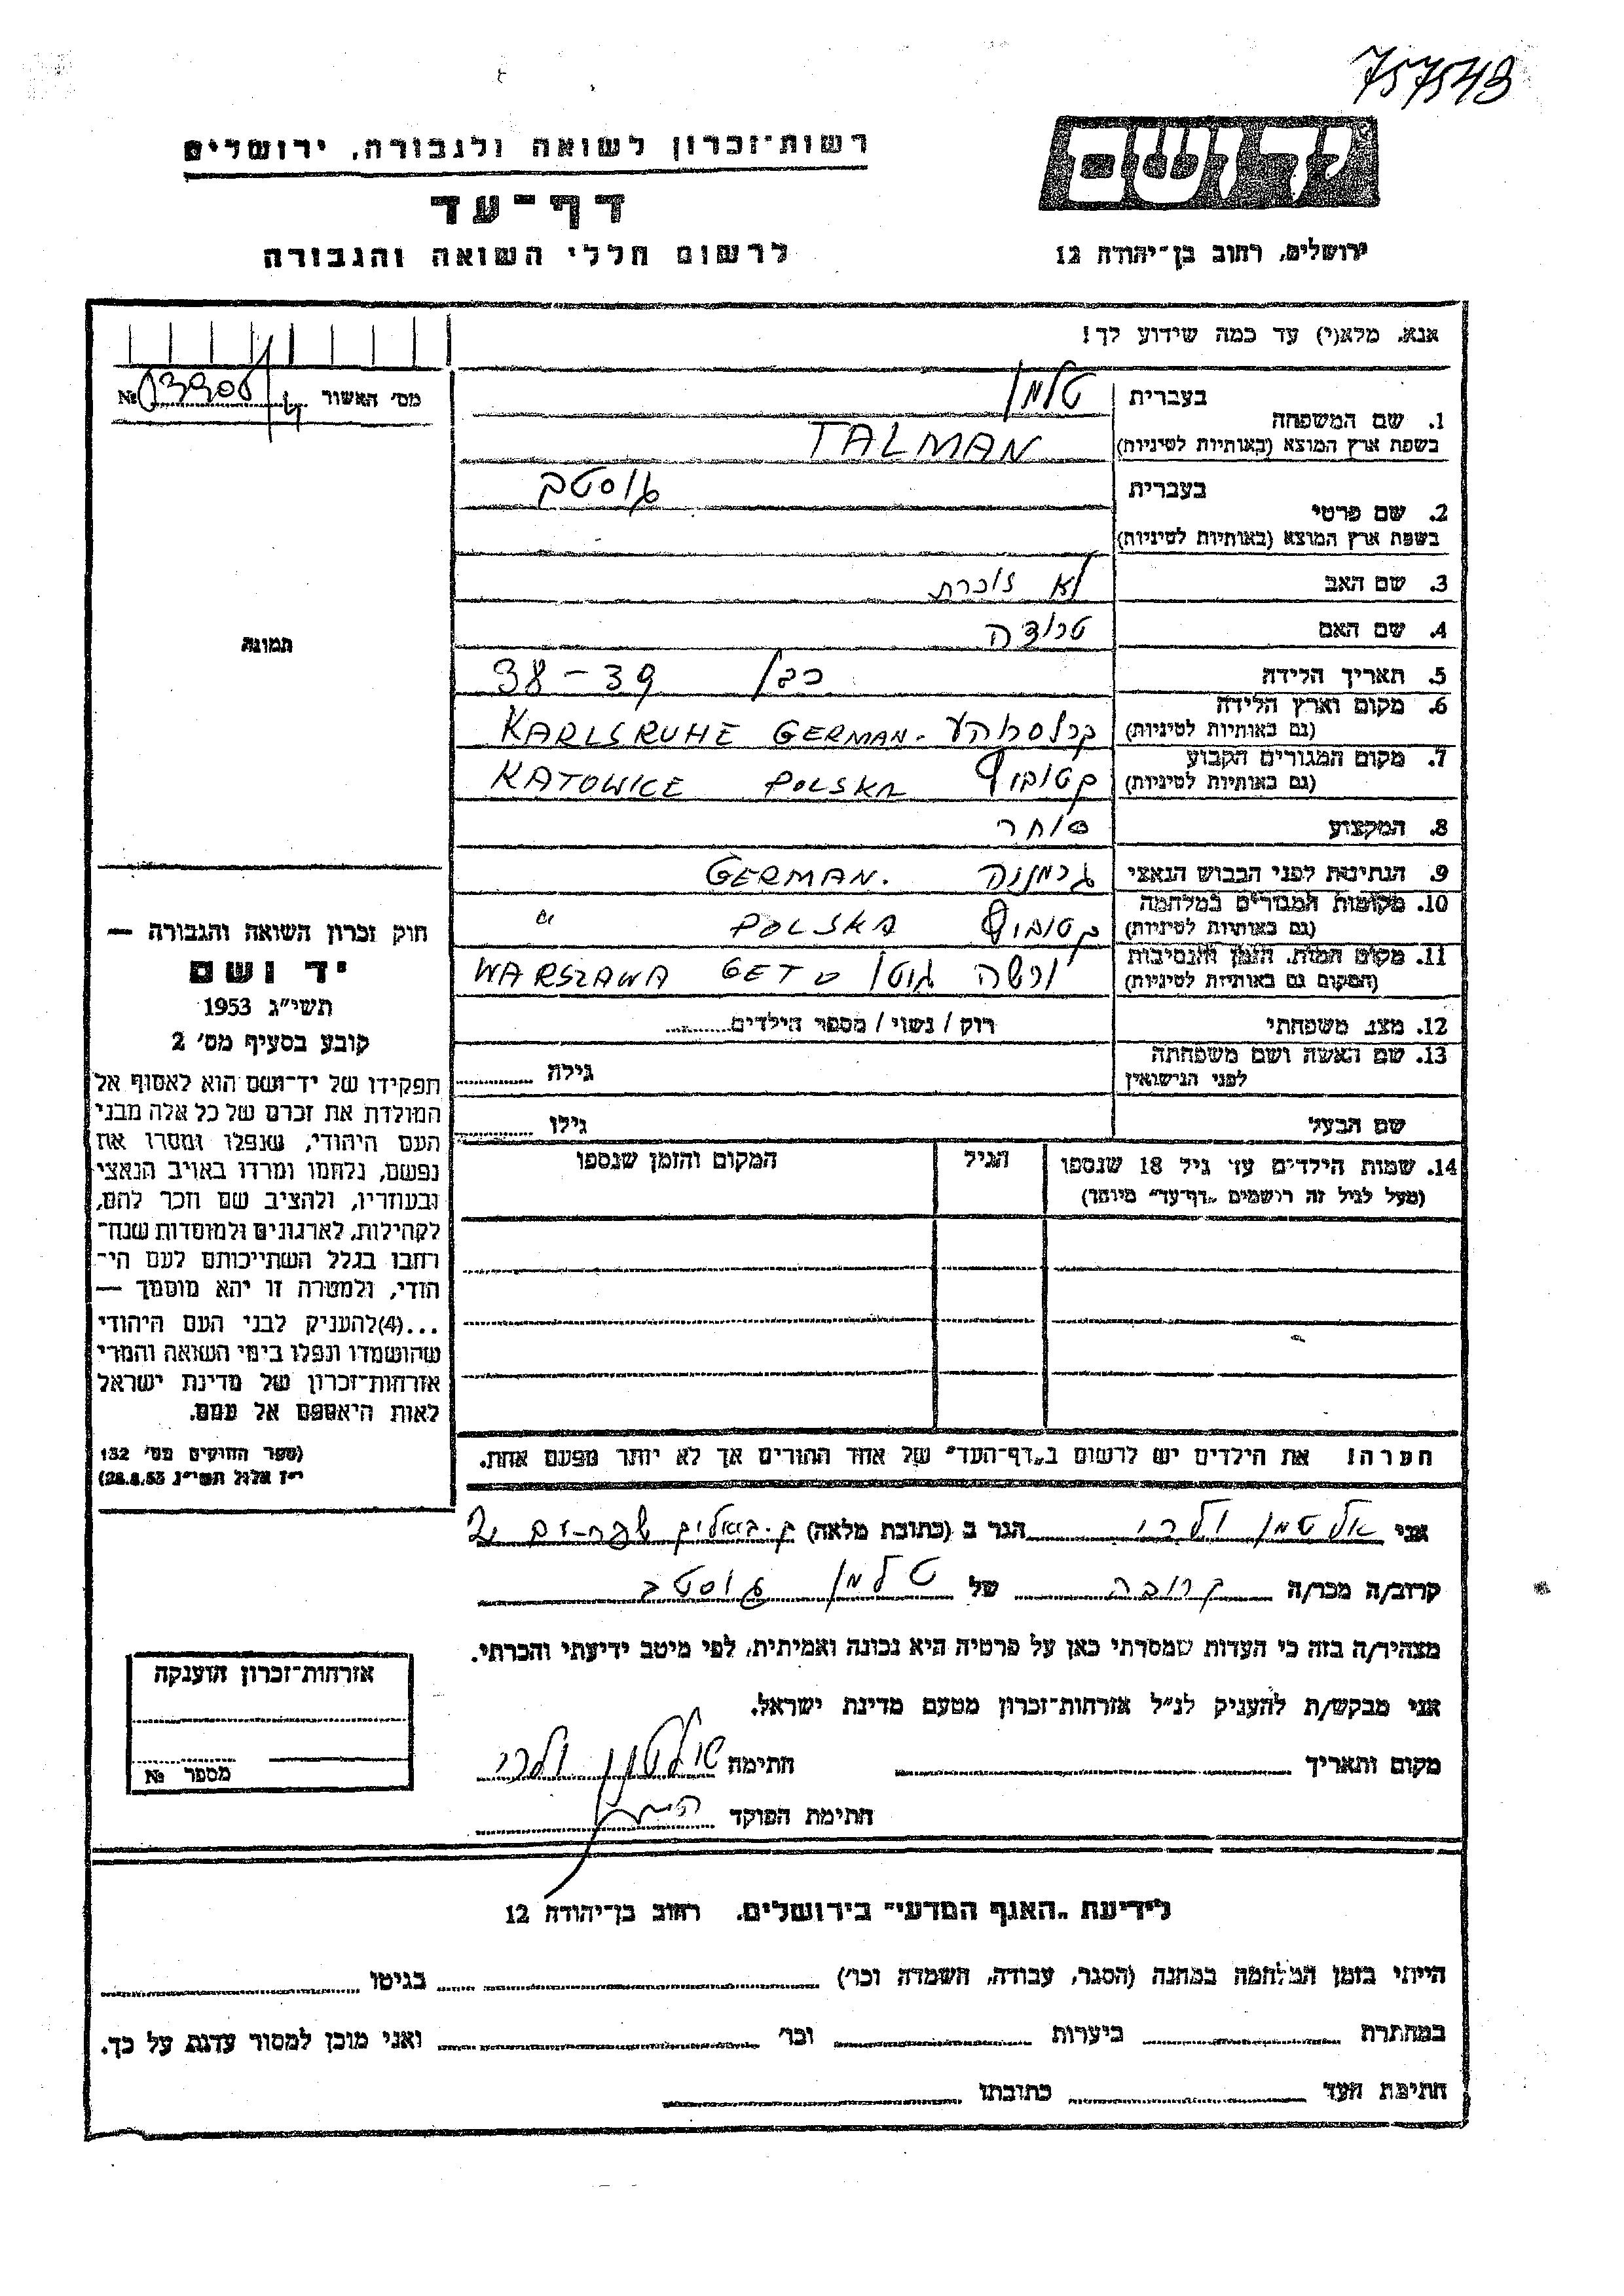 757543
רשות־זכרון לשואה ולגבורה, ירושלים
דף־עד
לרשום חללי השואה והגבורה
יד ושם
ירושלים, רחוב בן־יהודה 12
אנא, מלא(י) עד כמה שידוע לך!
מס' האשור №
1. שם המשפחה
בעברית טלמן
בשפת ארץ המוצא (באותיות לטיניות) TALMAN
2. שם פרטי
בעברית גוסטב
בשפת ארץ המוצא (באותיות לטיניות)
3. שם האב לא זוכרת
4. שם האם
5. תאריך הלידה בבן 38-39
6. מקום וארץ הלידה
(גם באותיות לטיניות) KARLSRUHE GERMAN.
7. מקום המגורים הקבוע
(גם באותיות לטיניות) קטוביץ KATOWICE POLSKA
8. המקצוע סוחר
9. הנתינות לפני הכבוש הנאצי גרמניה GERMAN.
10. מקומות המגורים במלחמה
(גם באותיות לטיניות) קטוביץ POLSKA "
11. מקום המות, הזמן והנסיבות
(המקום גם באותיות לטיניות) ורשה גטו WARSZAWA GETO
12. מצב משפחתי רוק / נשוי / מספר הילדים
13. שם האשה ושם משפחתה
לפני הנישואין גילה
שם הבעל גילו
14. שמות הילדים עד גיל 18 שנספו
(מעל לגיל זה רושמים „דף־עד” מיוחד)
הגיל
המקום והזמן שנספו
הערה! את הילדים יש לרשום ב„דף־העד” של אחד ההורים אך לא יותר מפעם אחת.
תמונה
חוק זכרון השואה והגבורה —
יד ושם
תשי"ג 1953
קובע בסעיף מס' 2
תפקידו של יד־ושם הוא לאסוף אל
המולדת את זכרם של כל אלה מבני
העם היהודי, שנפלו ומסרו את
נפשם, נלחמו ומרדו באויב הנאצי
ובעוזריו, ולהציב שם וזכר להם,
לקהילות, לארגונים ולמוסדות שנח־
רבו בגלל השתייכותם לעם הי־
הודי, ולמטרה זו יהא מוסמך —
...(4)להעניק לבני העם היהודי
שהושמדו ונפלו בימי השואה והמרי
אזרחות־זכרון של מדינת ישראל
לאות היאספם אל עמם.
(ספר החוקים מס' 132
י"ז אלול תשי"ג 28.8.53)
אני הגר ב (כתובת מלאה)
קרוב/ה מכר/ה קרובה של טלמן גוסטב
מצהיר/ה בזה כי העדות שמסרתי כאן על פרטיה היא נכונה ואמיתית, לפי מיטב ידיעתי והכרתי.
אני מבקש/ת להעניק לנ"ל אזרחות־זכרון מטעם מדינת ישראל.
מקום ותאריך חתימה
חתימת הפוקד
אזרחות־זכרון הוענקה
מספר №
לידיעת „האגף המדעי” בירושלים, רחוב בן־יהודה 12
הייתי בזמן המלחמה במחנה (הסגר, עבודה, השמדה וכו') בגיטו
במחתרת ביערות וכו' ואני מוכן למסור עדות על כך.
חתימת העד כתובתו